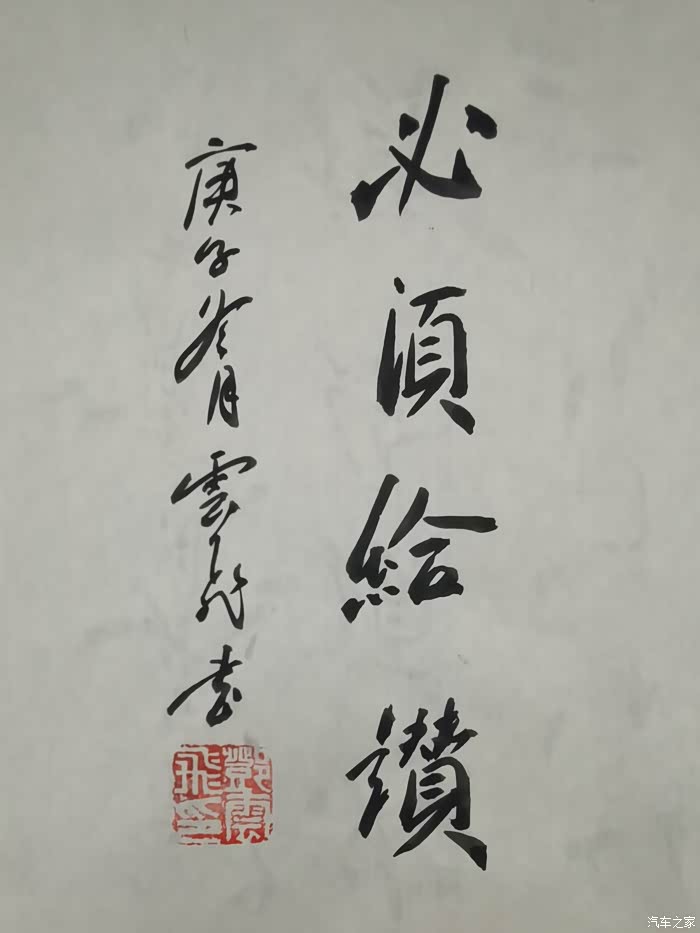 必須給讚
庚子冬月雲飛書
鄧雲飛印
汽车之家